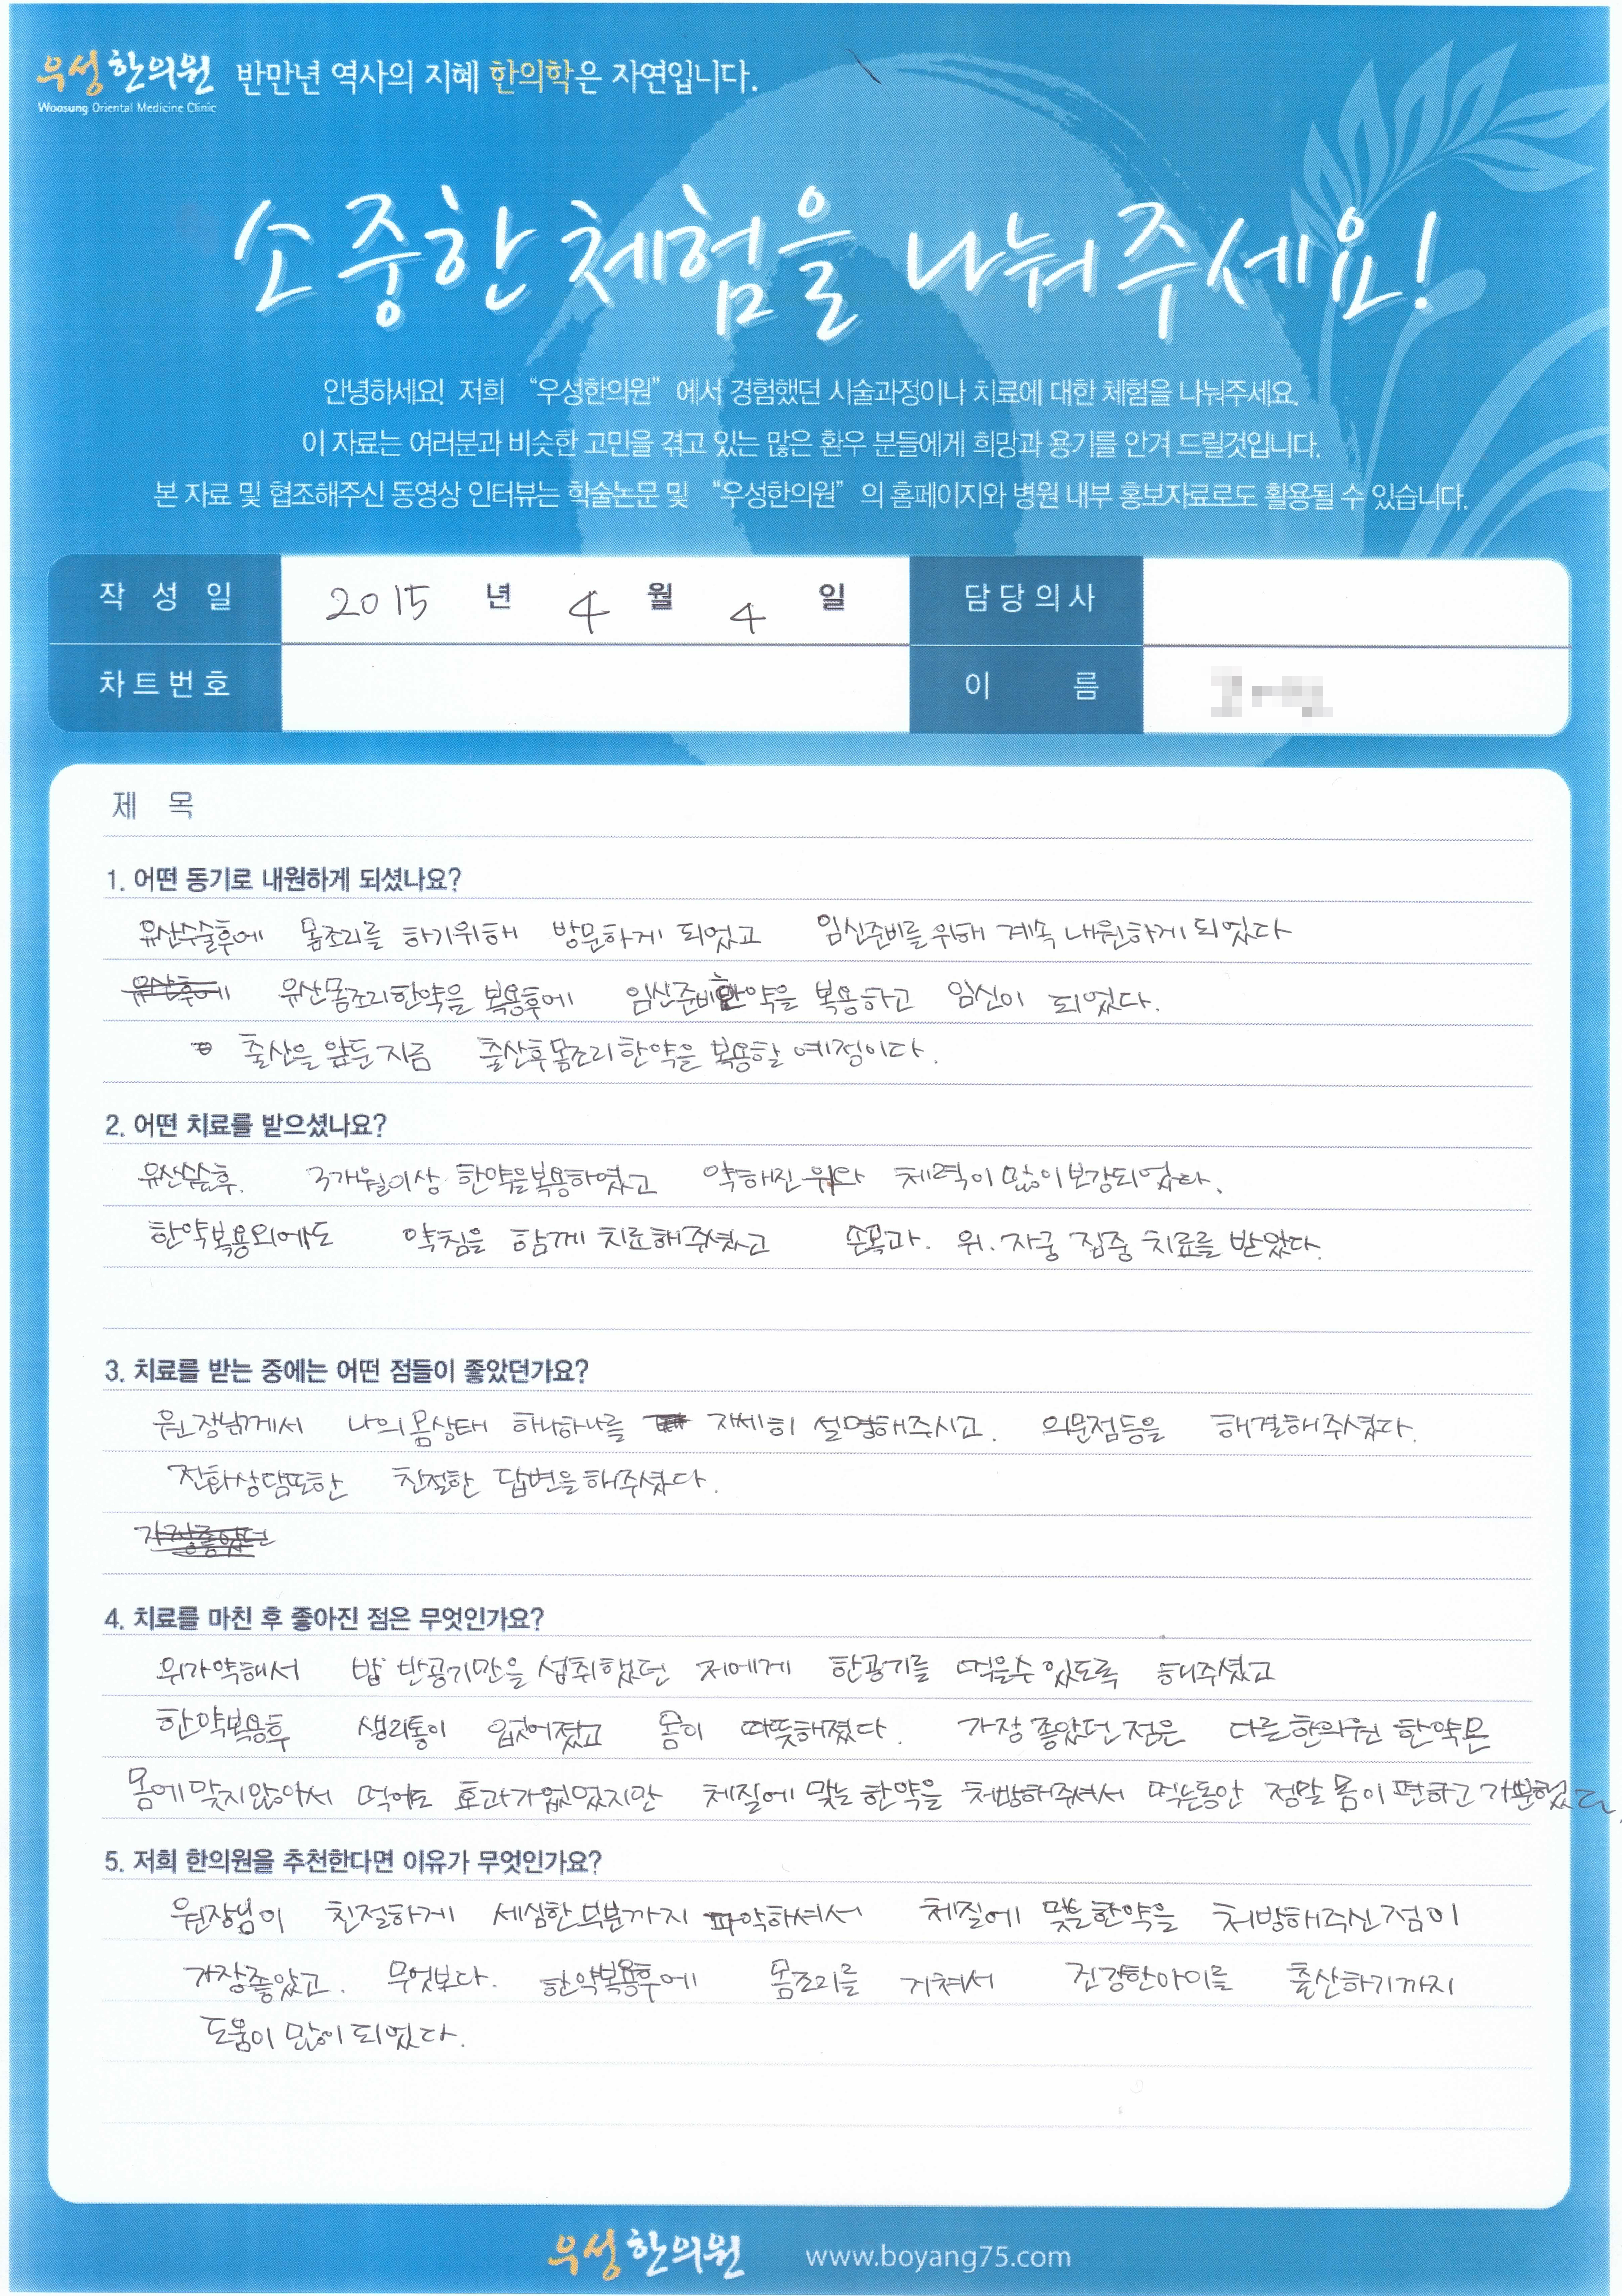 우성한의원 반만년 역사의 지혜 한의학은 자연입니다.
Woosung Oriental Medicine Clinic
소중한 체험을 나눠주세요!
안녕하세요! 저희 “우성한의원” 에서 경험했던 시술과정이나 치료에 대한 체험을 나눠주세요.
이 자료는 여러분과 비슷한 고민을 겪고 있는 많은 환우 분들에게 희망과 용기를 안겨 드릴것입니다.
본 자료 및 협조해주신 동영상 인터뷰는 학술논문 및 “우성한의원” 의 홈페이지와 병원 내부 홍보자료로도 활용될 수 있습니다.
작 성 일 2015 년 4 월 4 일 담당의사
차트번호 이 름
제 목
1. 어떤 동기로 내원하게 되셨나요?
유산수술후에 몸조리를 하기위해 방문하게 되었고 임신준비를 위해 계속 내원하게 되었다
유산후에 유산몸조리한약을 복용후에 임신준비한약을 복용하고 임신이 되었다.
출산을 앞둔지금 출산후몸조리한약을 복용할 예정이다.
2. 어떤 치료를 받으셨나요?
유산수술후. 3개월이상 한약을복용하였고 약해진 위와 체력이 많이보강되었다.
한약복용외에도 약침을 함께 치료해주셨고 손목과. 위. 자궁 집중 치료를 받았다.
3. 치료를 받는 중에는 어떤 점들이 좋았던가요?
원장님께서 나의몸상태 하나하나를 자세히 설명해주시고. 의문점등을 해결해주셨다.
전화상담또한 친절한 답변을해주셨다.
가장좋았던
4. 치료를 마친 후 좋아진 점은 무엇인가요?
위가약해서 밥 반공기만을 섭취했던 저에게 한공기를 먹을수 있도록 해주셨고
한약복용후 생리통이 없어졌고 몸이 따뜻해졌다. 가장 좋았던 점은 다른한의원 한약은
몸에맞지않아서 먹어도 효과가없었지만 체질에 맞는 한약을 처방해주셔서 먹는동안 정말 몸이 편하고 가뿐했다.
5. 저희 한의원을 추천한다면 이유가 무엇인가요?
원장님이 친절하게 세심한부분까지 파악하셔서 체질에 맞는한약을 처방해주신점이
가장좋았고. 무엇보다. 한약복용후에 몸조리를 거쳐서 건강한아이를 출산하기까지
도움이 많이되었다.
우성한의원 www.boyang75.com